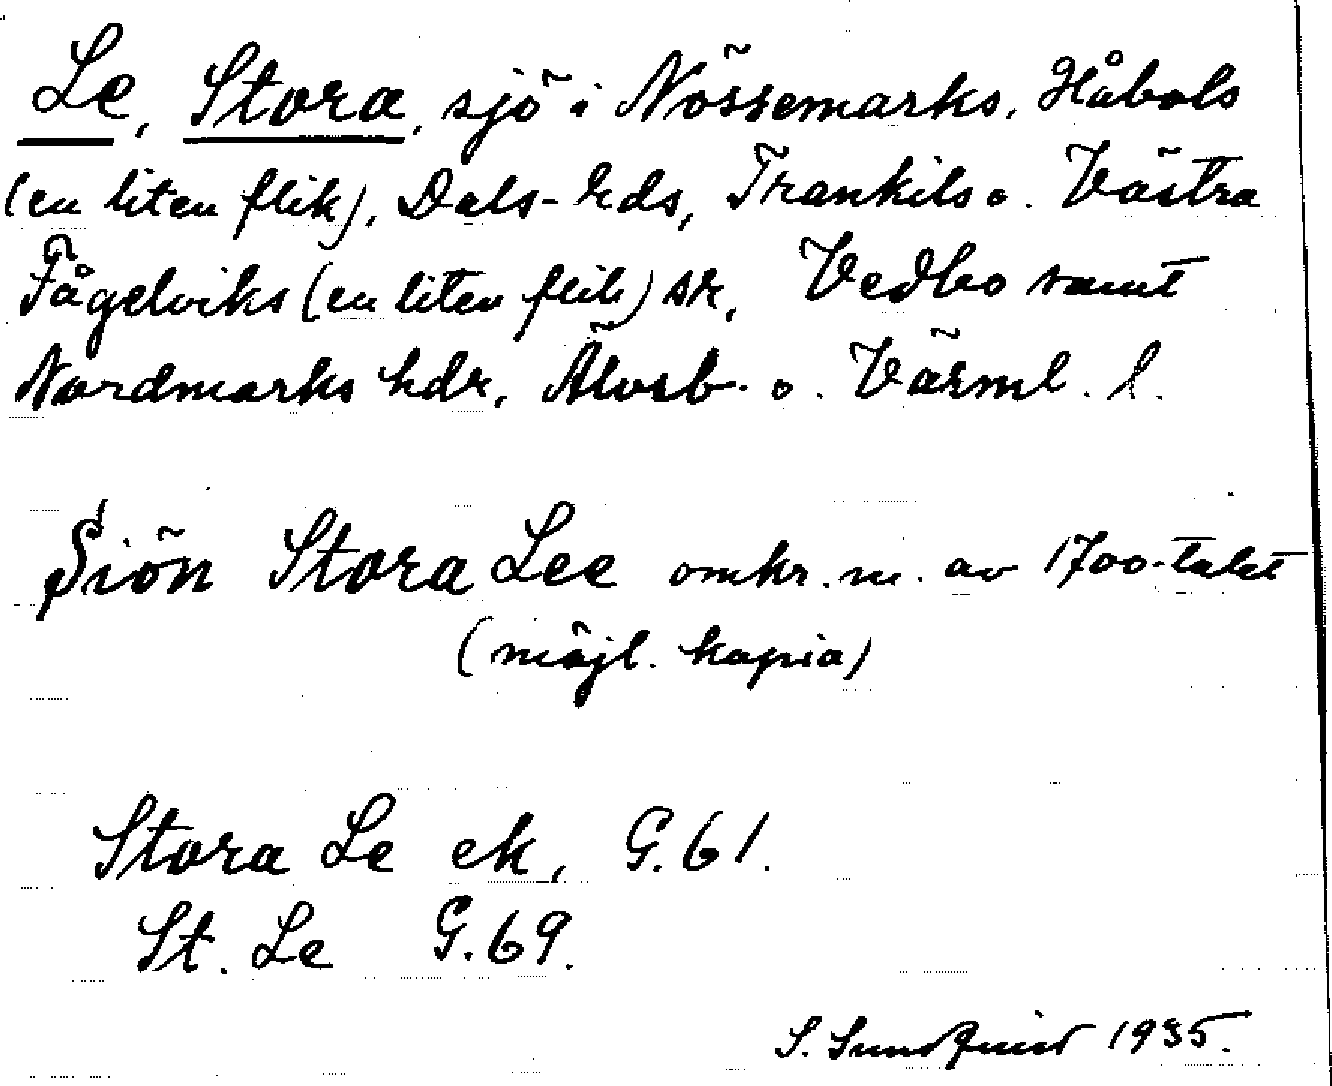 Le, Stora, sjö i Nössemarks, Håbols
(en liten flik), Dals-Eds, Trankils o. Västra
Fågelviks (en liten flik) skr, Vedbo samt
Nordmarks hdr, Älvsb. o. Värml. l.
Siön Stora Lee omkr. m. av 1700-talet
(möjl. kopia)
Stora Le ek, G.61.
St. Le G.69.
S. Sundquist 1935.